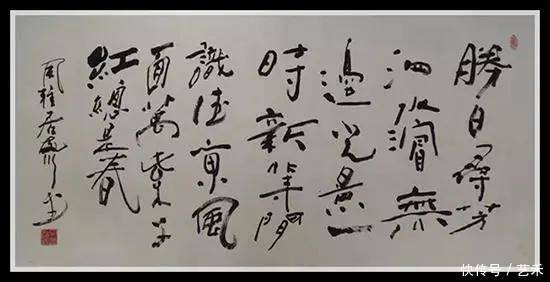 勝日尋芳
泗水濱無
邊光景一
時新等閒
識得東風
面萬紫千
紅總是春
快传号/艺禾